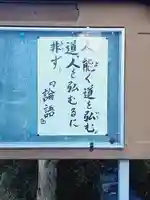 人能く道を弘む、
道人を弘むるに
非ず。『論語』